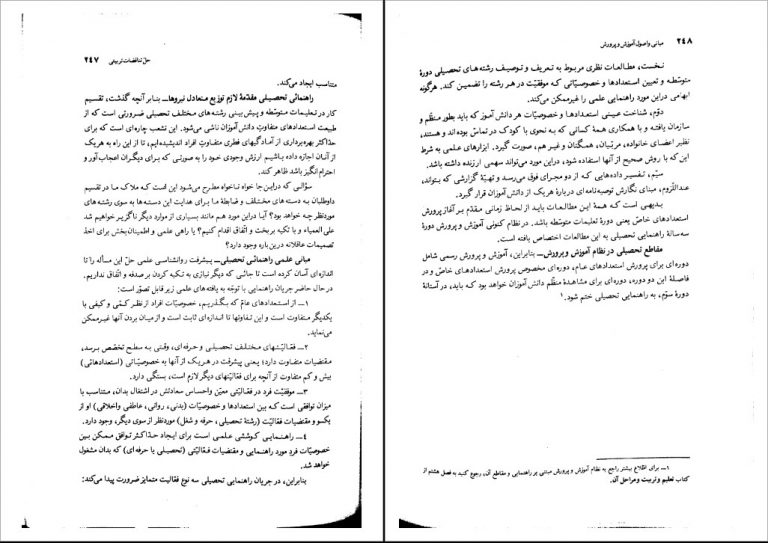 حل تناقضات تربیتی ۲۴۷
متناسب ایجاد می‌کند.
راهنمائی تحصیلی مقدمهٔ لازم توزیع متعادل نیروها ــ بنابر آنچه گذشت، تقسیم
کار در تعلیمات متوسطه و پیش‌بینی رشته‌های مختلف تحصیلی ضرورتی است که از
طبیعت استعدادهای متفاوت دانش‌آموزان ناشی می‌شود. این تشعب چاره‌ای است که برای
حداکثر بهره‌برداری از آمادگیهای فطری متفاوت افراد اندیشیده‌ایم، تا از این راه به هریک
از آنان اجازه داده باشیم ارزش وجودی خود را به صورتی که برای دیگران اعجاب‌آور و
احترام‌انگیز باشد ظاهر کند.
سؤالی که دراین‌جا خواه نـاخواه مطرح می‌شود این است کـه ملاک مـا در تقسیم
داوطلبان به دسته‌های مختلف و ضابطهٔ ما برای هدایت این دسته‌ها به سوی رشته‌های
موردنظر چه خواهد بود؟ آیـا دراین مورد هم مانند بسیاری از موارد دیگر ناگزیر خواهیم شد
علی‌العمیاء و با تکیه بربخت و اتفاق اقدام کنیم؟ یا راهی علمی و اطمینان‌بخش برای اخذ
تصمیمات عاقلانه دراین‌باره وجود دارد؟
مبانی علمی راهنمائی تحصیلی ــ پیشرفت روانشناسی علمی حل این مسأله را تا
اندازه‌ای آسان کرده است تا جائـی که دیگر نیازی به تکیه کردن برصدفه و اتفاق نداریم.
در حال حاضر جریان راهنمایی با توجه به یافته‌های علمی زیر قابل تصور است:
۱ــ از استعدادهای عام که بگذریم، خصوصیات افراد از نظر کمی و کیفی با
یکدیگر متفاوت است و این تفاوتها تا اندازه‌ای ثابت است و از میان بردن آنها غیرممکن
می‌نماید.
۲ــ فعالیتهای مختلف تحصیلی و حرفه‌ای، وقتی به سطح تخصص برسد،
مقتضیات متفاوت دارد؛ یعنی پیشرفت در هریک از آنها به خصوصیاتی (استعدادهائی)
بیش و کم متفاوت از آنچه برای فعالیتهای دیگر لازم است، بستگی دارد.
۳ــ موفقیت فرد در فعالیتی معین و احساس سعادتش در اشتغال بدان، متناسب با
میزان توافقی است کـه بین استعدادها و خصوصیات (بدنی، روانی، عاطفی و اخلاقی) او از
یکسو و مقتضیات فعالیت (رشتهٔ تحصیلی، حرفه و شغل) موردنظر از سوی دیگر، وجود دارد.
۴ــ راهنمایی کوششی علمی است برای ایجاد حداکثر توافق ممکن بین
خصوصیات فرد مورد راهنمایی و مقتضیات فعالیتی (تحصیلی یا حرفه‌ای) که بدان مشغول
خواهد شد.
بنابراین، در جریان راهنمایی تحصیلی سه نوع فعالیت متمایز ضرورت پیدا می‌کند:
۲۴۸ مبانی و اصول آموزش و پرورش
نخست، مطالعات نظری مربوط به تعریف و توصیف رشته‌های تحصیلی دورهٔ
متوسطه و تعیین استعدادها و خصوصیاتی که موفقیت در هر رشته را تضمین کند. هرگونه
ابهامی دراین مورد راهنمایی علمی را غیرممکن می‌کند.
دوم، شناخت عینی استعدادها و خصوصیات هر دانش آموز که باید بطور منظم و
سازمان یافته و با همکاری همهٔ کسانی که به نحوی با کودک در تماس بوده‌اند و هستند،
نظیر اعضای خانواده، مربیان، همگنان و غیر هم، صورت گیرد. ابزارهای علمی به شرط
این که با روش صحیح از آنها استفاده شود، دراین مورد می‌تواند سهمی ارزنده داشته باشد.
سوم، تفسیر داده‌هایی که از دو مجرای فوق می‌رسد و تهیهٔ گزارشی که بتواند،
عنداللزوم، مبنای نگارش توصیه‌نامه‌ای دربارهٔ هریک از دانش‌آموزان قرار گیرد.
بدیهی است که همهٔ این مطالعات باید از لحاظ زمانی مقدم بر آغاز پرورش
استعدادهای خاص یعنی دورهٔ تعلیمات متوسطه باشد. در نظام کنونی آموزش و پرورش دورهٔ
سه‌سالهٔ راهنمایی تحصیلی به این مطالعات اختصاص یافته است.
مقاطع تحصیلی در نظام آموزش و پرورش ــ بنابراین، آموزش و پرورش رسمی شامل
دوره‌ای برای پرورش استعدادهای عام، دوره‌ای مخصوص پرورش استعدادهای خاص و در
فاصلهٔ این دو دوره، دوره‌ای برای مشاهدهٔ منظم دانش‌آموزان خواهد بود که باید، در آستانهٔ
دورهٔ سوم، به راهنمایی تحصیلی ختم شود.۱
۱ــ برای اطلاع بیشتر راجع به نظام آموزش و پرورش مبتنی بر راهنمایی و مقاطع آن، رجوع کنید به فصل هشتم از
کتاب تعلیم و تربیت و مراحل آن.